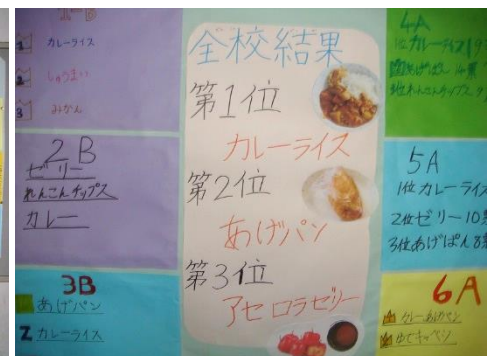 1 カレーライス
2 しゅうまい
3 みかん
2B
ゼリー
れんこんチップス
カレー
3B
あげパン
2 カレーライス
全校結果
第1位
カレーライス
第2位
あげパン
第3位
アセロラゼリー
4A
1位カレーライス
あげぱん
3位れんこんチップス
5A
1位カレーライス
2位ゼリー10票
3位あげぱん8票
6A